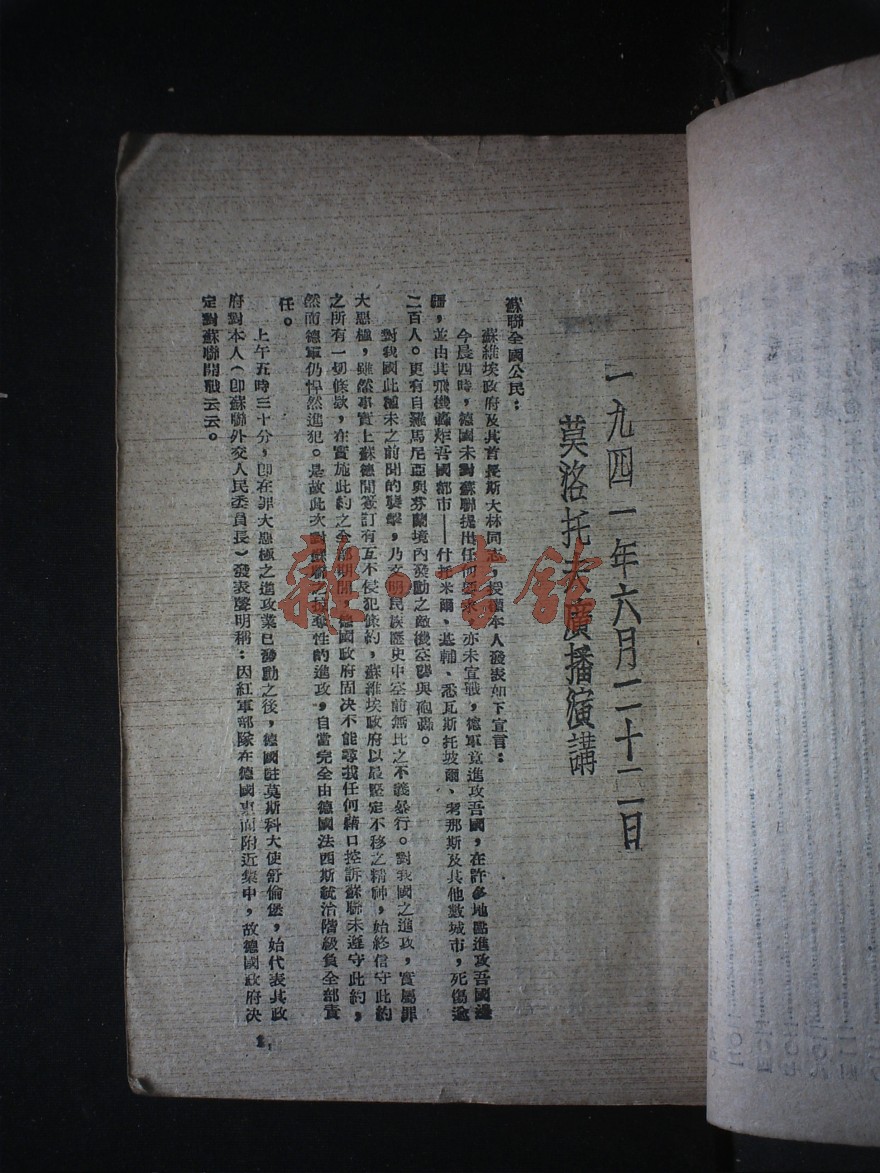 一九四一年六月二十二日
莫洛托夫廣播演講
蘇聯全國公民：
蘇維埃政府及其首長斯大林同志，授權本人發表如下宣言：
今晨四時，德國未對蘇聯提出任何要求，亦未宣戰，德軍竟進攻吾國，在許多地點進攻吾國邊
疆，並由其飛機轟炸吾國都市——什托米爾、基輔、悉瓦斯托坡爾、考那斯及其他數城市，死傷逾
二百人。更有自羅馬尼亞與芬蘭境內發動之敵機空襲與砲轟。
對我國此種未之前聞的襲擊，乃文明民族歷史中空前無比之不義暴行。對我國之進攻，實屬罪
大惡極，雖然事實上蘇德間簽訂有互不侵犯條約，蘇維埃政府以最堅定不移之精神，始終信守此約
之所有一切條款，在實施此約之全部期間，德國政府固决不能尋找任何藉口控訴蘇聯未遵守此約，
然而德軍仍悍然進犯。是故此次對蘇聯之掠奪性的進攻，自當完全由德國法西斯統治階級負全部責
任。
上午五時三十分，卽在罪大惡極之進攻業已發動之後，德國駐莫斯科大使舒倫堡，始代表其政
府對本人（卽蘇聯外交人民委員長）發表聲明稱：因紅軍部隊在德國東面附近集中，故德國政府决
定對蘇聯開戰云云。
雜·書館